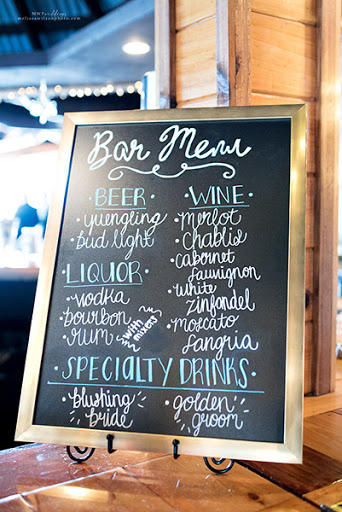 Bar Menu
• BEER •
• yuengling
• bud light
LIQUOR •
• vodka
• bourbon
• rum
with mixers
• WINE •
• Merlot
• Chablis
• Cabernet
Sauvignon
• White
Zinfandel
• Moscato
• Sangria
• SPECIALTY DRINKS •
• blushing
bride
• golden
groom